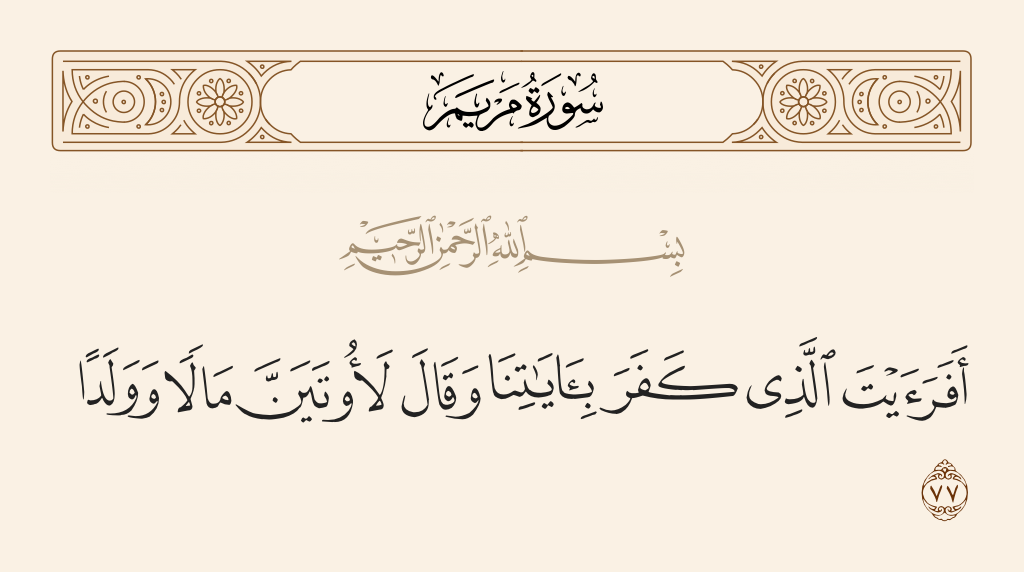 سُورَةُ مَرْيَمَ
بِسْمِ ٱللَّهِ ٱلرَّحْمَٰنِ ٱلرَّحِيمِ
أَفَرَءَيْتَ ٱلَّذِى كَفَرَ بِـَٔايَـٰتِنَا وَقَالَ لَأُوتَيَنَّ مَالًا وَوَلَدًا
٧٧